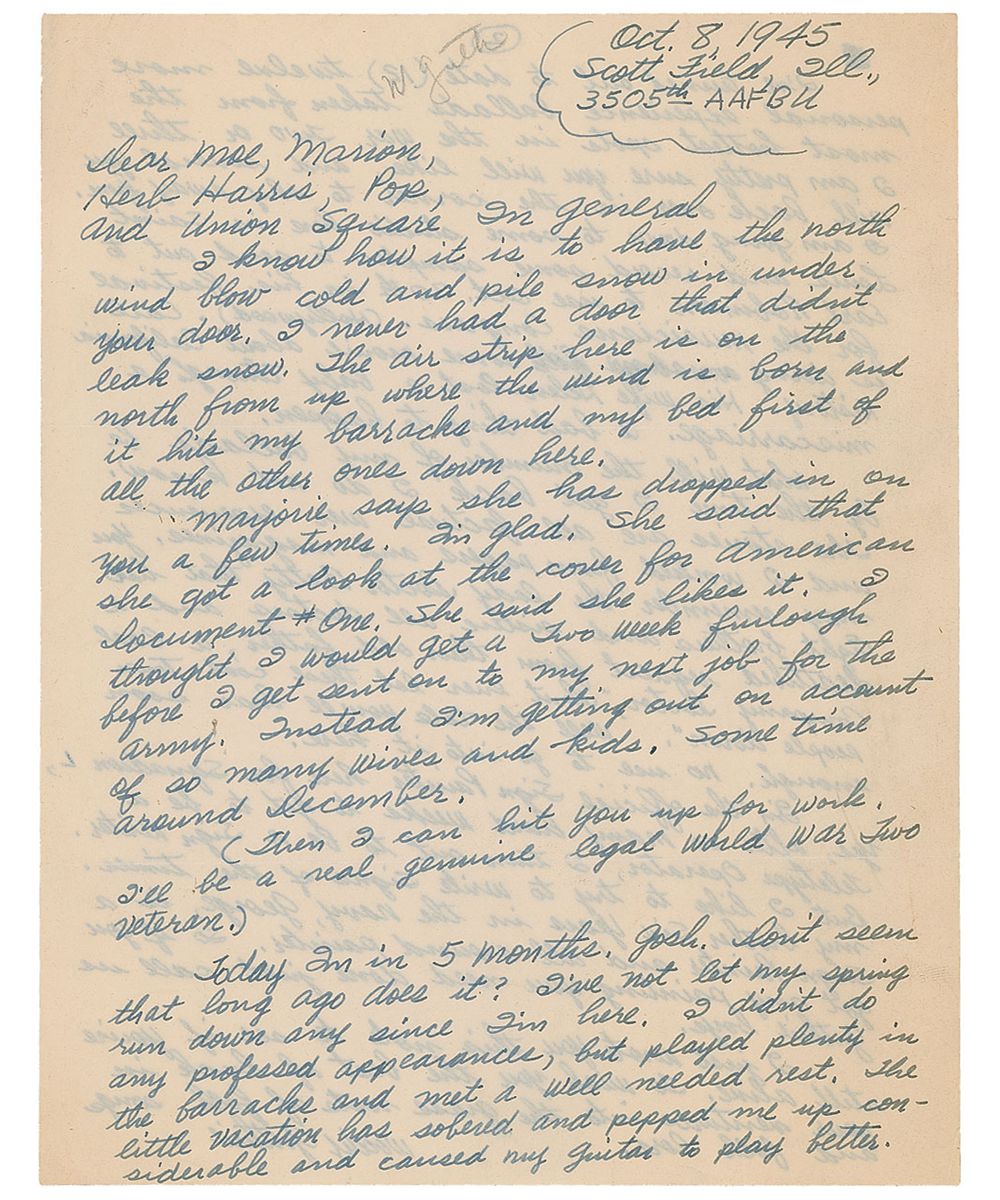 W Guthe
Oct. 8, 1945
Scott Field, Ill.,
3505th AAFBU
Dear Moe, Marion,
Herb Harris, Pop,
and Union Square In general
I know how it is to have the north
wind blow cold and pile snow in under
your door. I never had a door that didn't
leak snow. The air strip here is on the
north from up where the wind is born and
it hits my barracks and my bed first of
all the other ones down here.
Marjorie says she has dropped in on
you a few times. I'm glad. She said that
she got a look at the cover for American
Document # One. She said she likes it. I
thought I would get a Two week furlough
before I get sent on to my next job for the
army. Instead I'm getting out on account
of so many wives and kids. Some time
around December.
(Then I can hit you up for work.
I'll be a real genuine legal World War Two
veteran.)
Today Im in 5 months. Gosh. Don't seem
that long ago does it? I've not let my spring
run down any since I'm here. I didn't do
any professed appearances, but played plenty in
the barracks and met a well needed rest. The
little vacation has sobered and pepped me up con-
siderable and caused my guitar to play better.